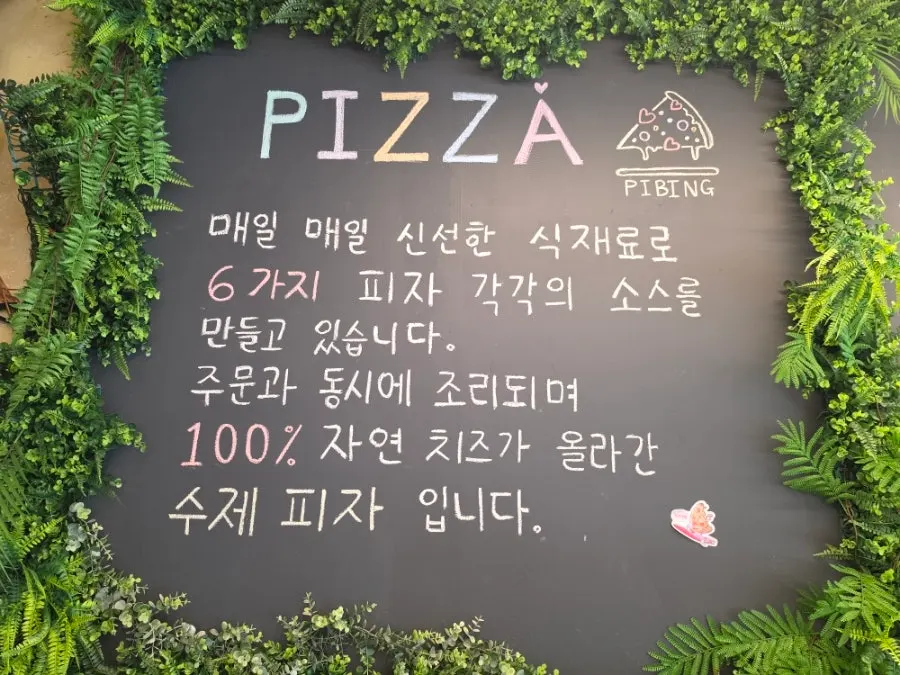 PIZZA
PIBING
매일 매일 신선한 식재료로
6가지 피자 각각의 소스를
만들고 있습니다.
주문과 동시에 조리되며
100% 자연 치즈가 올라간
수제 피자 입니다.